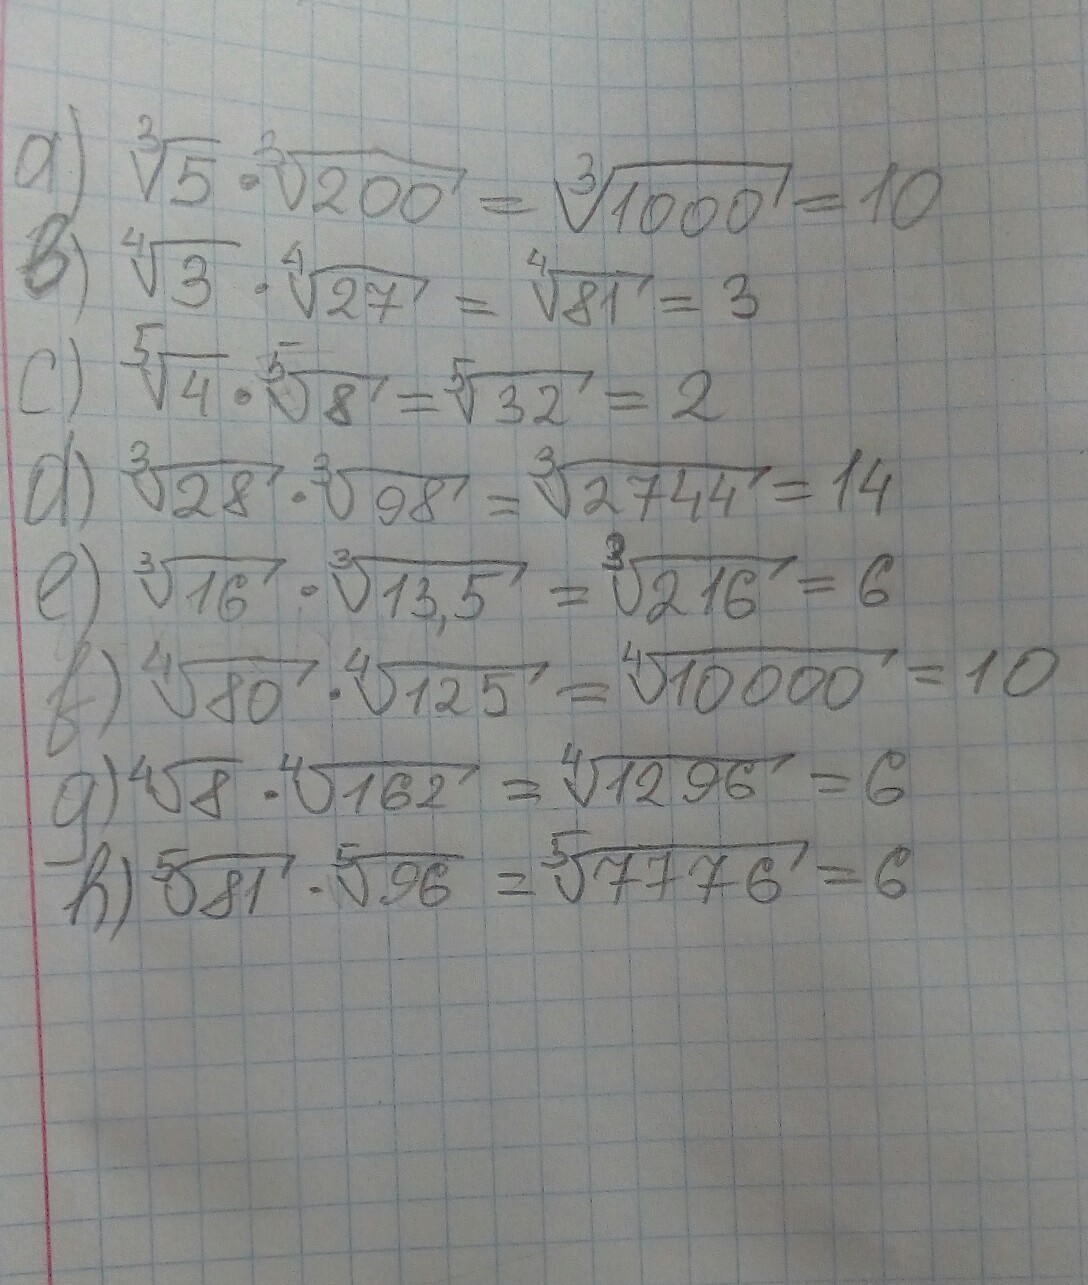 a) ∛5 · ∛200 = ∛1000 = 10
b) ∜3 · ∜27 = ∜81 = 3
c) ⁵√4 · ⁵√8 = ⁵√32 = 2
d) ∛28 · ∛98 = ∛2744 = 14
e) ∛16 · ∛13,5 = ∛216 = 6
f) ∜80 · ∜125 = ∜10000 = 10
g) ∜8 · ∜162 = ∜1296 = 6
h) ⁵√81 · ⁵√96 = ⁵√7776 = 6